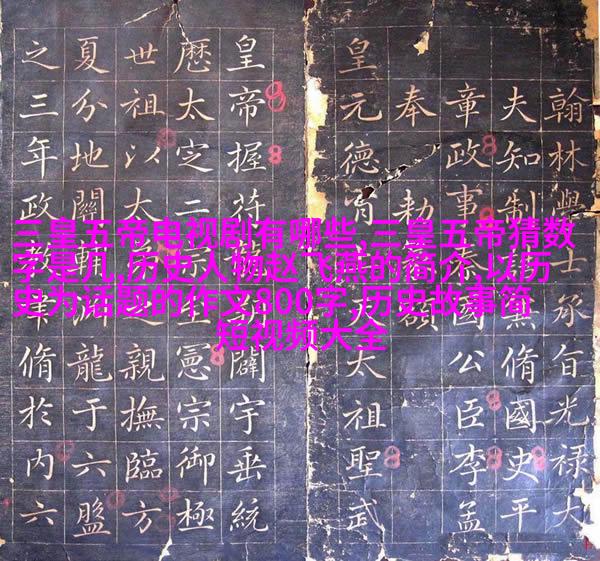 三皇五帝电视剧有哪些,三皇五帝猜数
字是几,历史人物赵飞燕的简介,以历
史为话题的作文800字,历史故事简
短视频大全
翰林學士承旨光禄大
夫知制兼脩國史平
章政事國公臣李孟
奉勅
皇元德太祖聖武
皇帝握符闢宇垂統
歷太定二宗憲宗御極
世祖以太之親撫臨方
夏分地關龍于六盤
之三年政教脩於内六